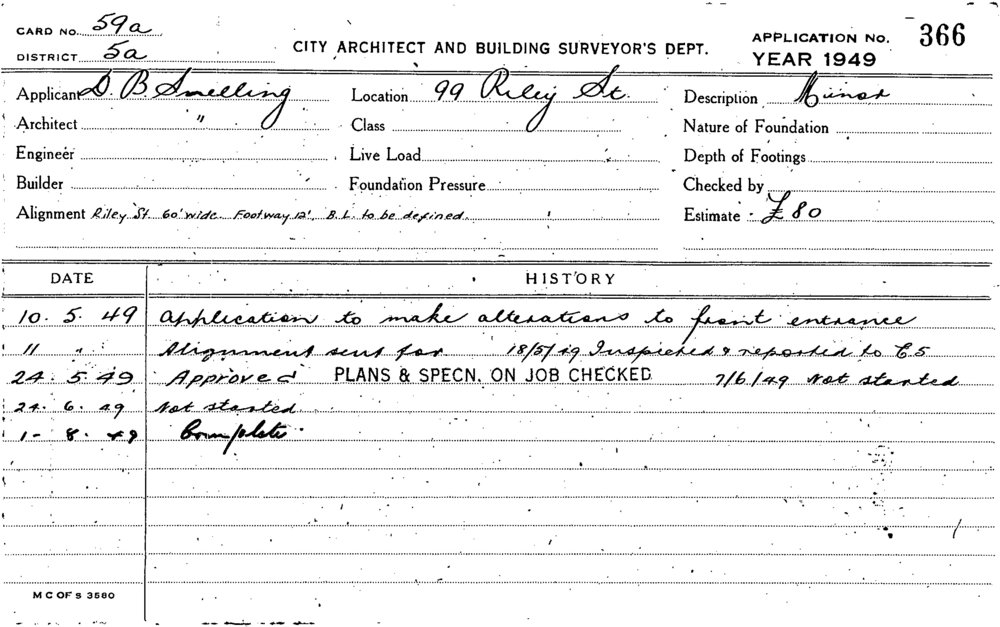 CARD NO. 59a
DISTRICT 5a
CITY ARCHITECT AND BUILDING SURVEYOR'S DEPT.
APPLICATION NO. 366
YEAR 1949
Applicant D. B. Snelling Location 99 Riley St. Description Minor
Architect " Class Nature of Foundation
Engineer Live Load Depth of Footings
Builder Foundation Pressure Checked by
Alignment Riley St 60' wide. Footway 12'. B.L. to be defined. Estimate £80
DATE HISTORY
10. 5. 49 Application to make alterations to front entrance
11 " Alignment sent for 18/5/49 Inspected & reported to C.S
24. 5. 49 Approved PLANS & SPECN. ON JOB CHECKED 7/6/49 Not started
24. 6. 49 Not started
1- 8. 49 Complete
M C OF S 3580